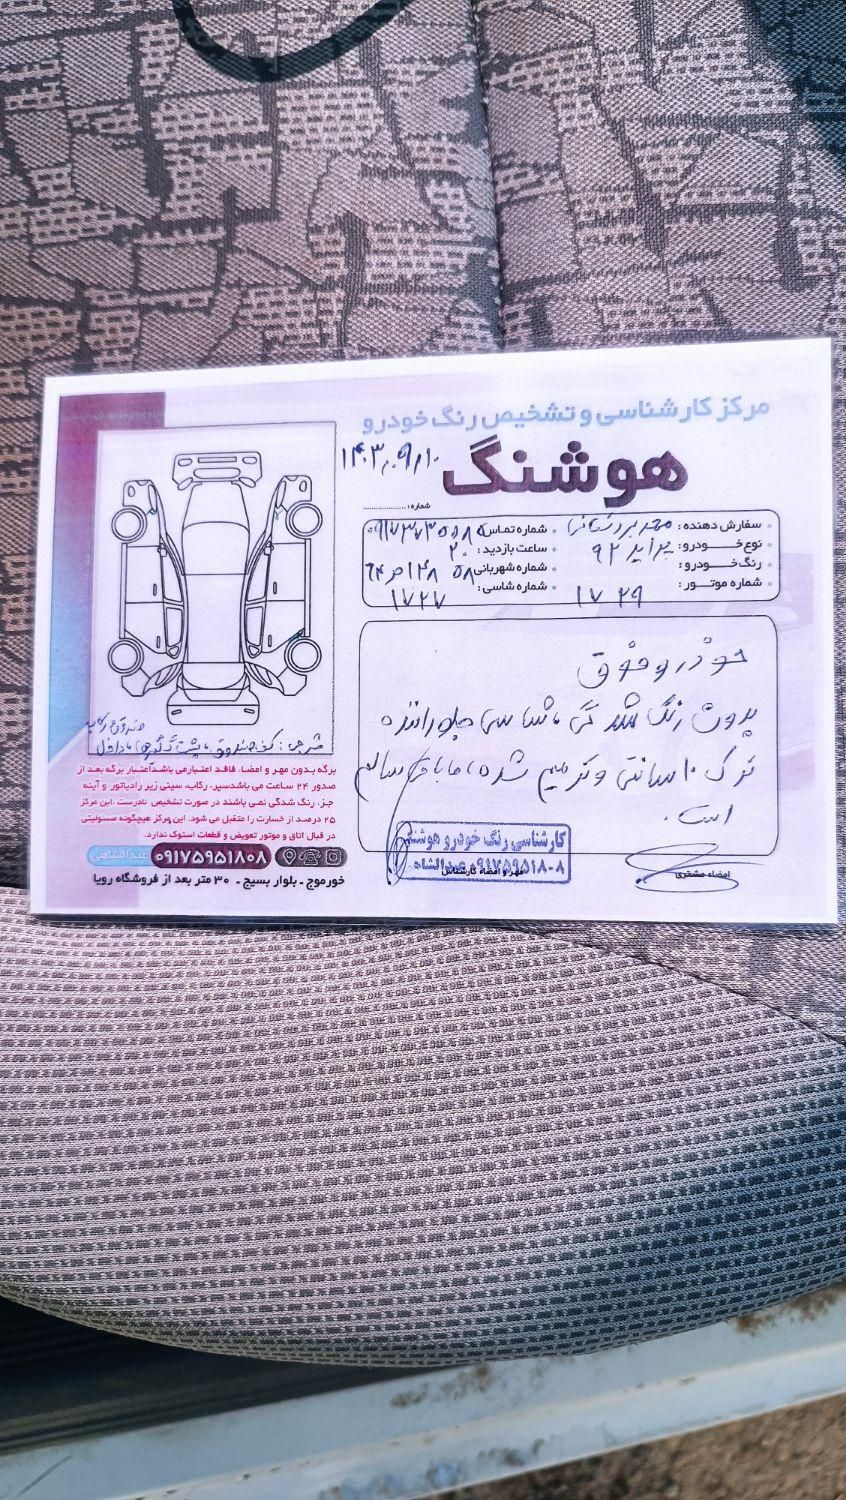 مرکز کارشناسی و تشخیص رنگ خودرو
هوشنگ
۱۴۰۳,۰۹,۱۰
شماره:
سفارش دهنده: محمد
شماره تماس:
نوع خودرو: پراید ۹۲
ساعت بازدید: ۲۰
رنگ خودرو:
شماره شهربانی:
شماره موتور: ۱۷۲۹
شماره شاسی: ۱۷۲۷
خودرو فوق
بدون رنگ شدگی، شاسی جلو راننده
ترک ۱۰ سانتی و ترمیم شده، مابقی سالم
است.
امضاء مشتری
مهر و امضاء کارشناس
کارشناسی رنگ خودرو هوشنگ
۰۹۱۷۵۹۵۱۸۰۸ عبدالشاهی
شرجی: کف صندوق، پشت گلگیرها، داخل
برگه بدون مهر و امضاء فاقد اعتبار می باشد اعتبار برگه بعد از
صدور ۲۴ ساعت می باشد سپر، رکاب، سینی زیر رادیاتور و آینه
جز، رنگ شدگی نمی باشند در صورت تشخیص نادرست، این مرکز
۲۵ درصد از خسارت را متقبل می شود. این مرکز هیچگونه مسئولیتی
در قبال اتاق و موتور تعویض و قطعات استوک ندارد.
۰۹۱۷۵۹۵۱۸۰۸ عبدالشاهی
خورموج - بلوار بسیج - ۳۰ متر بعد از فروشگاه رویا